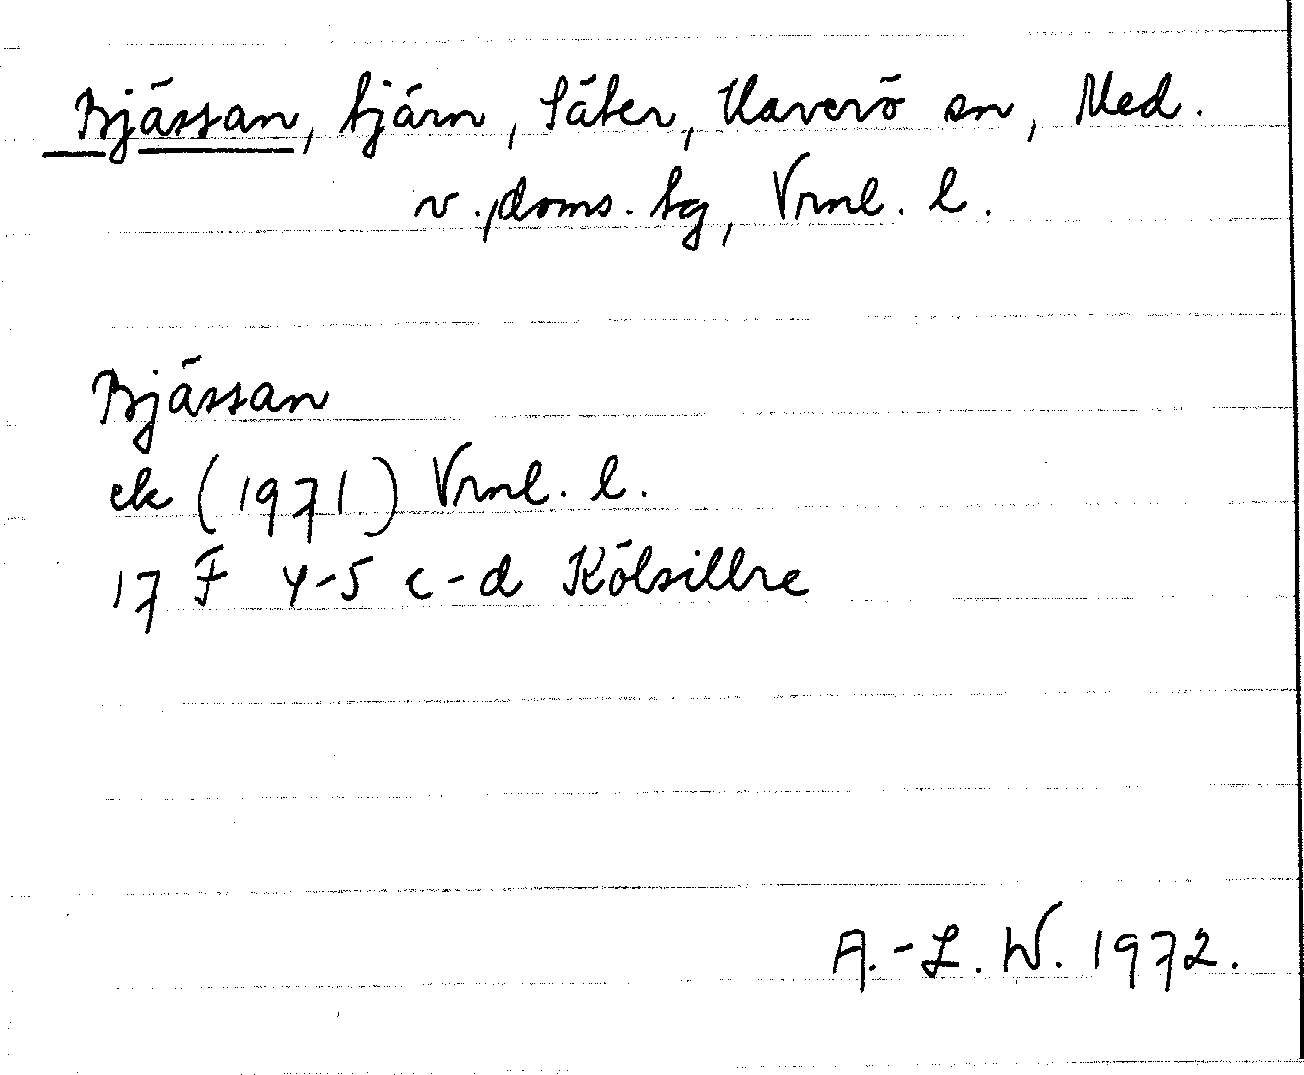 Bjässan, tjärn, Säter, Haverö sn, Med.
v., doms. tg, Vrnl. l.
Bjässan
ek (1971) Vrnl. l.
17 F 4-5 c-d Kölsillre
A.-L. W. 1972.